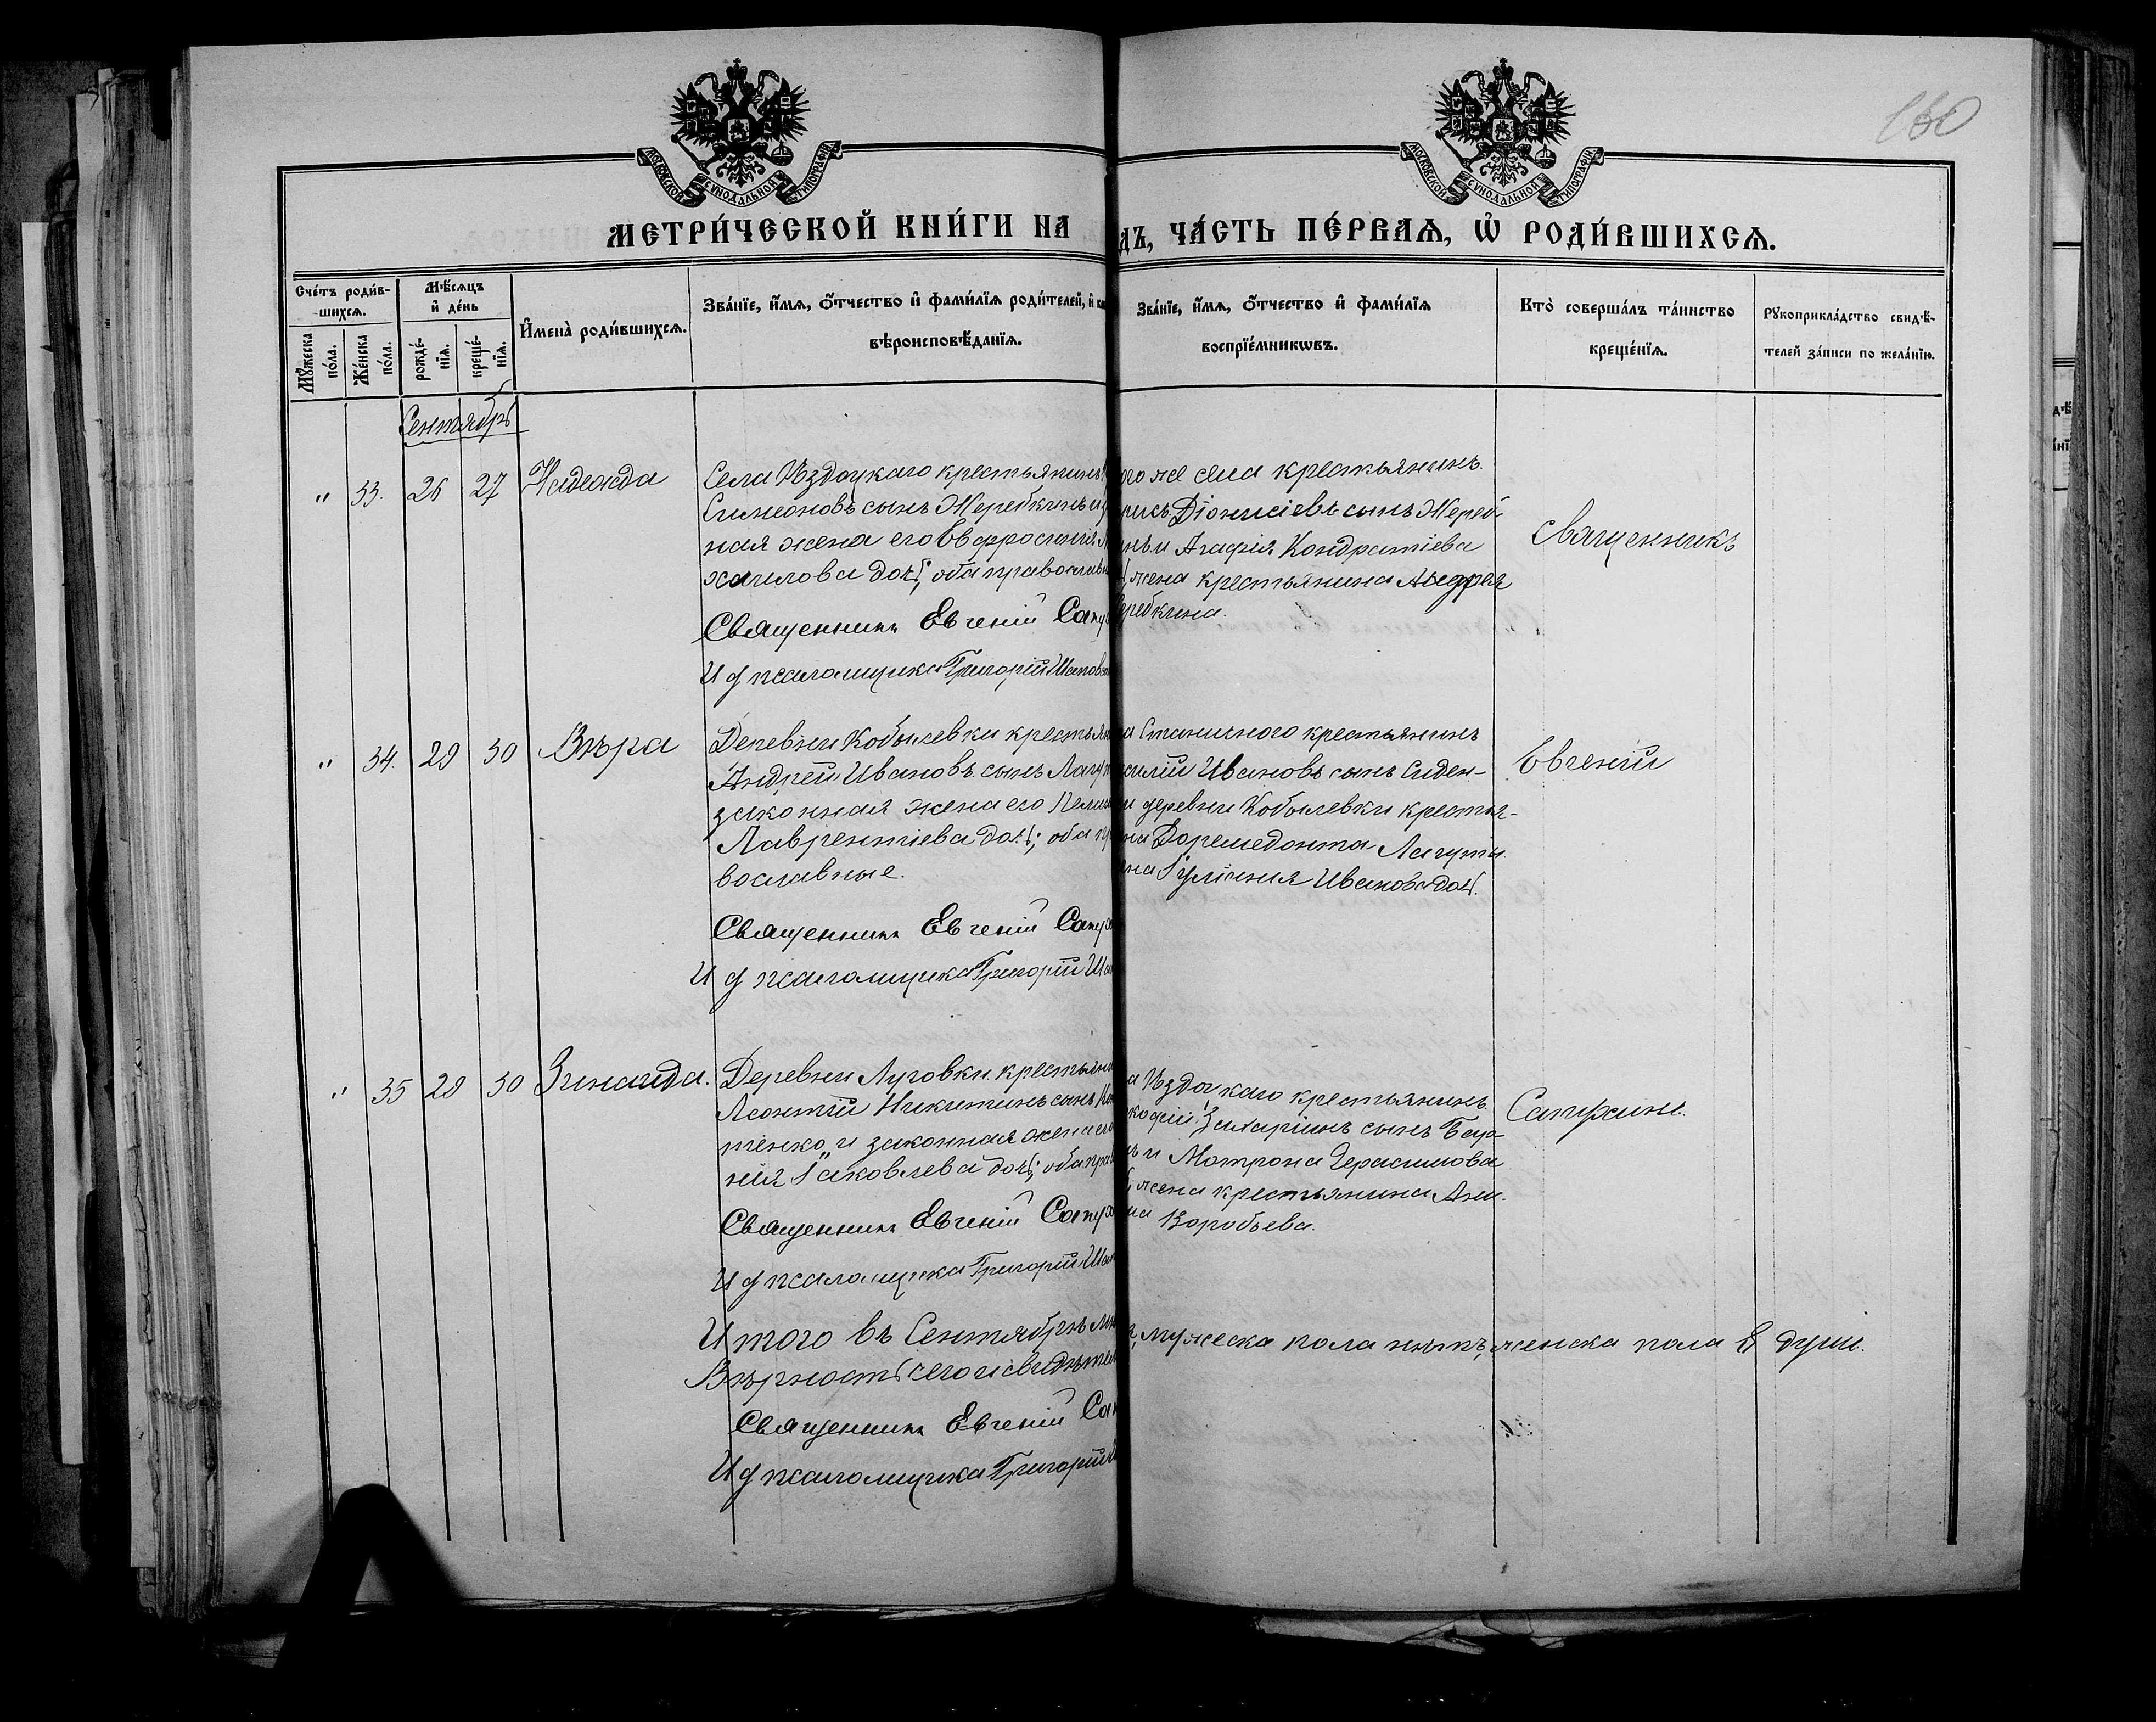 150
МОСКОВСКОЙ СѴНОДАЛЬНОЙ ТИПОГРАФІИ
МОСКОВСКОЙ СѴНОДАЛЬНОЙ ТИПОГРАФІИ
МЕТРИ́ЧЕСКОЙ КНИ́ГИ НА
ДЪ, ЧА́СТЬ ПЕ́РВАѦ, Ѡ҆ РОДИ́ВШИХСѦ.
Сче́тъ роди́в-
шихсѧ.
Мꙋ́жеска по́ла.
Же́нска по́ла.
Мѣ́сѧцъ
и҆ де́нь
рожде́-
нїѧ.
креще́-
нїѧ.
И҆мена̀ роди́вшихсѧ.
Зва́нїе, и҆́мѧ, ѻ҆́тчество и҆ фами́лїѧ роди́телей, и҆
вѣроисповѣ́данїѧ.
Зва́нїе, и҆́мѧ, ѻ҆́тчество и҆ фами́лїѧ
воспрїе́мникѡвъ.
Кто̀ соверша́лъ та́инство
креще́нїѧ.
Рꙋкоприкла́дство свидѣ́-
телей за́писи по жела́нїю.
Сентябрь
" 33. 26 27 Надежда
Села Уздоцкаго крестьянинъ
Симеоновъ сынъ Жеребкинъ и
ная жена его Евфросинія
хаилова дочь; оба православн
Священникъ Евгеній Сапух
И д псаломщика Григорій Шапов
ого же села крестьянинъ
рисъ Діонисіевъ сынъ Жереб-
нъ и Агафія Кондратіева
жена крестьянина Андрея
еребкина.
Священникъ
" 34. 29 30 Вѣра
Деревни Кобылевки крестьян
Андрей Ивановъ сынъ Лагут
законная жена его Пела
Лаврентіева дочь; оба пр
вославные.
Священникъ Евгеній Сапух
И д псаломщика Григорій Ша
а Станичного крестьянинъ
силій Ивановъ сынъ Сиден-
и деревни Кобылевки крестья-
на Доримедонта Лагути
на Іуліанія Иванова дочь.
Евгеній
" 35 28 30 Зинаида.
Деревни Луговки крестьяни
Леонтій Никитинъ сынъ Ко
тенко, и законная жена его
нія Іаковлева дочь; оба прав
Священникъ Евгеній Сапух
И д псаломщика Григорій Шап
а Уздоцкаго крестьянинъ
кофій Захаріинъ сынъ Бар-
ъ и Матрона Герасимова
жена крестьянина Ани-
на Воробьева.
Сапухинъ.
Итого въ Сентябрѣ мѣ
мужеска пола нѣтъ, женска пола 8 душъ.
Вѣрность сего свидѣтел
Священникъ Евгеній Сап
И д псаломщика Григорій